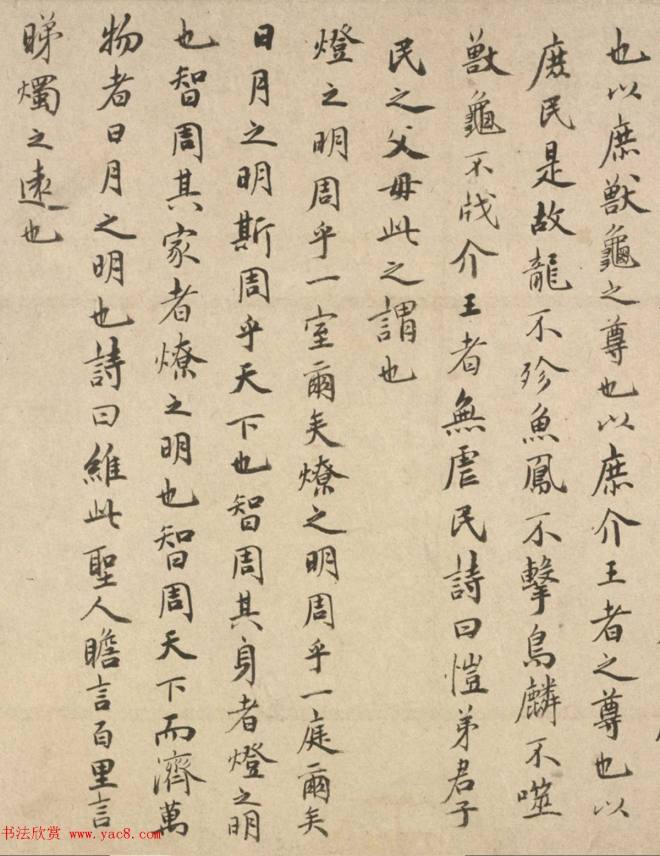 也以庶獸龜之尊也以庶介王者之尊也以
庶民是故龍不殄魚鳳不擊鳥麟不噬
獸龜不戕介王者無虐民詩曰愷弟君子
民之父母此之謂也
燈之明周乎一室爾矣燎之明周乎一庭爾矣
日月之明斯周乎天下也智周其身者燈之明
也智周其家者燎之明也智周天下而濟萬
物者日月之明也詩曰維此聖人瞻言百里言
睇燭之遠也
书法欣赏 www.yac8.com